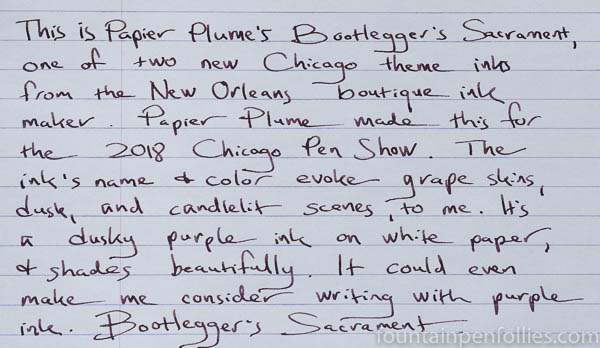 This is Papier Plume's Bootlegger's Sacrament,
one of two new Chicago theme inks
from the New Orleans boutique ink
maker. Papier Plume made this for
the 2018 Chicago Pen Show. The
ink's name & color evoke grape skins,
dusk, and candlelit scenes, to me. It's
a dusky purple ink on white paper,
& shades beautifully. It could even
make me consider writing with purple
ink. Bootlegger's Sacrament.
fountainpenfollies.com